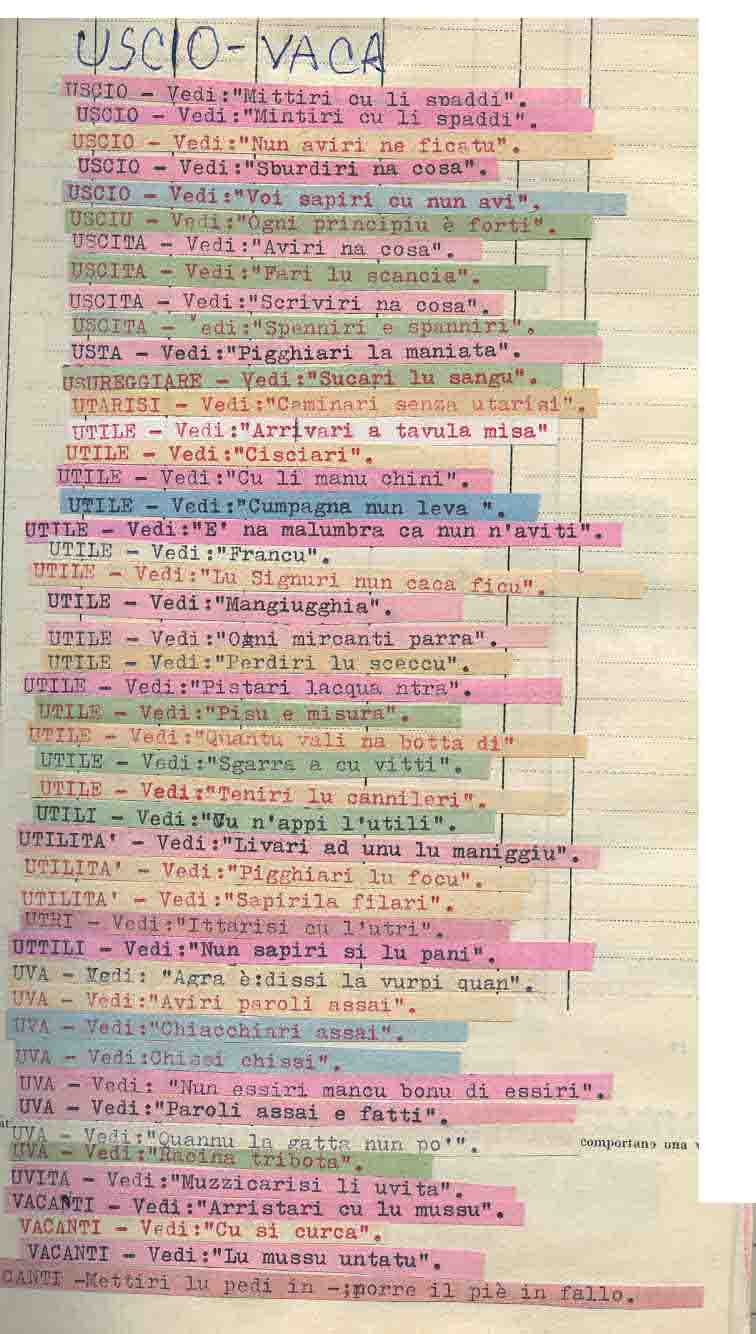 USCIO-VACA
USCIO - Vedi:"Mittiri cu li spaddi".
USCIO - Vedi:"Mintiri cu li spaddi".
USCIO - Vedi:"Nun aviri ne ficatu".
USCIO - Vedi:"Sburdiri na cosa".
USCIO - Vedi:"Voi sapiri cu nun avi".
USCIU - Vedi:"Ogni principiu è forti".
USCITA - Vedi:"Aviri na cosa".
USCITA - Vedi:"Fari lu scancia".
USCITA - Vedi:"Scriviri na cosa".
USCITA - Vedi:"Spenniri e spanniri".
USTA - Vedi:"Pigghiari la maniata".
USUREGGIARE - Vedi:"Sucari lu sangu".
UTARISI - Vedi:"Caminari senza utarisi".
UTILE - Vedi:"Arrivari a tavula misa"
UTILE - Vedi:"Cisciari".
UTILE - Vedi:"Cu li manu chini".
UTILE - Vedi:"Cumpagna nun leva ".
UTILE - Vedi:"E' na malumbra ca nun n'aviti".
UTILE - Vedi:"Francu".
UTILE - Vedi:"Lu Signuri nun caca ficu".
UTILE - Vedi:"Mangiugghia".
UTILE - Vedi:"Ogni mircanti parra".
UTILE - Vedi:"Perdiri lu sceccu".
UTILE - Vedi:"Pistari lacqua ntra".
UTILE - Vedi:"Pisu e misura".
UTILE - Vedi:"Quantu vali na botta di"
UTILE - Vedi:"Sgarra a cu vitti".
UTILE - Vedi:"Teniri lu cannileri".
UTILI - Vedi:"Cu n'appi l'utili".
UTILITA' - Vedi:"Livari ad unu lu maniggiu".
UTILITA' - Vedi:"Pigghiari lu focu".
UTILITA' - Vedi:"Sapirila filari".
UTRI - Vedi:"Ittarisi cu l'utri".
UTTILI - Vedi:"Nun sapiri si lu pani".
UVA - Vedi: "Agra è:dissi la vurpi quan".
UVA - Vedi:"Aviri paroli assai".
UVA - Vedi:"Chiacchiari assai".
UVA - Vedi:Chissi chissi".
UVA - Vedi: "Nun essiri mancu bonu di essiri".
UVA - Vedi:"Paroli assai e fatti".
UVA - Vedi:"Quannu la gatta nun po'". comportano una
UVA - Vedi:"Racina tribota".
UVITA - Vedi:"Muzzicarisi li uvita".
VACANTI - Vedi:"Arristari cu lu mussu".
VACANTI - Vedi:"Cu si curca".
VACANTI - Vedi:"Lu mussu untatu".
CANTI -Mettiri lu pedi in -;porre il piè in fallo.